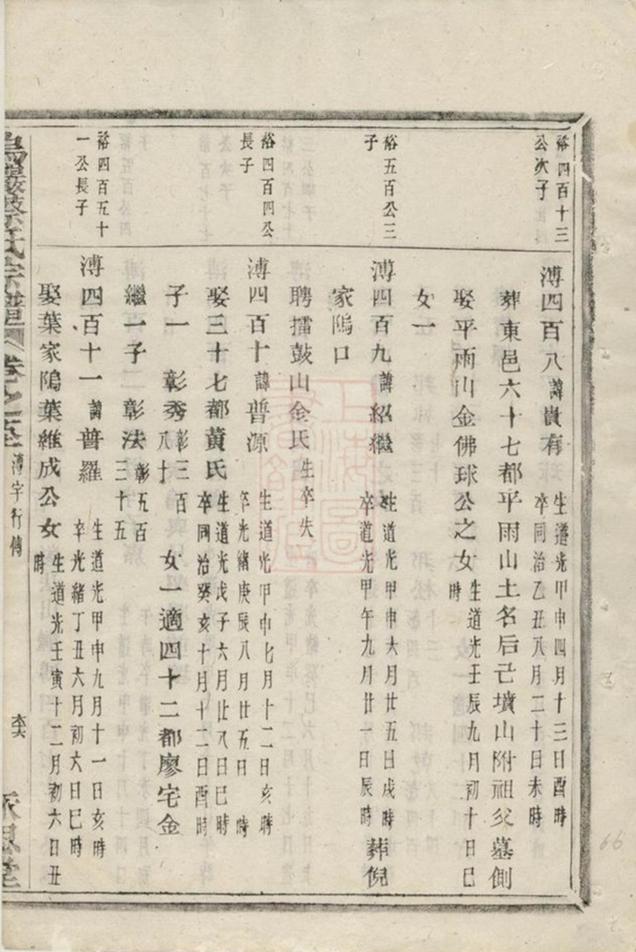 裕四百十三
公次子
溥四百八諱貴有
生道光甲申四月十三日酉時
卒同治乙丑八月二十日未時
葬東邑六十七都平雨山土名后己墳山附祖父墓側
娶平雨山金佛球公之女
生道光壬辰九月初十日巳
時
女一
裕五百公三
子
溥四百九諱紹繼
生道光甲申六月廿五日戌時
卒道光甲午九月廿一日辰時
葬倪
家隝口
聘擂鼓山金氏生卒失
裕四百四公
長子
溥四百十諱普源
生道光甲申七月十二日亥時
卒光緒庚辰八月廿五日 時
娶三十七都黃氏
生道光戊子六月廿八日巳時
卒同治癸亥十月十二日酉時
子一 彰秀
彰三百
八十
女一適四十二都廖宅金
繼一子 彰法
彰五百
三十五
裕四百五十
一公長子
溥四百十一諱普羅
生道光甲申九月十一日亥時
卒光緒丁丑六月初六日巳時
娶葉家隝葉維成公女
生道光壬寅十二月初六日丑
時
氏宗譜
卷之
溥字行傳